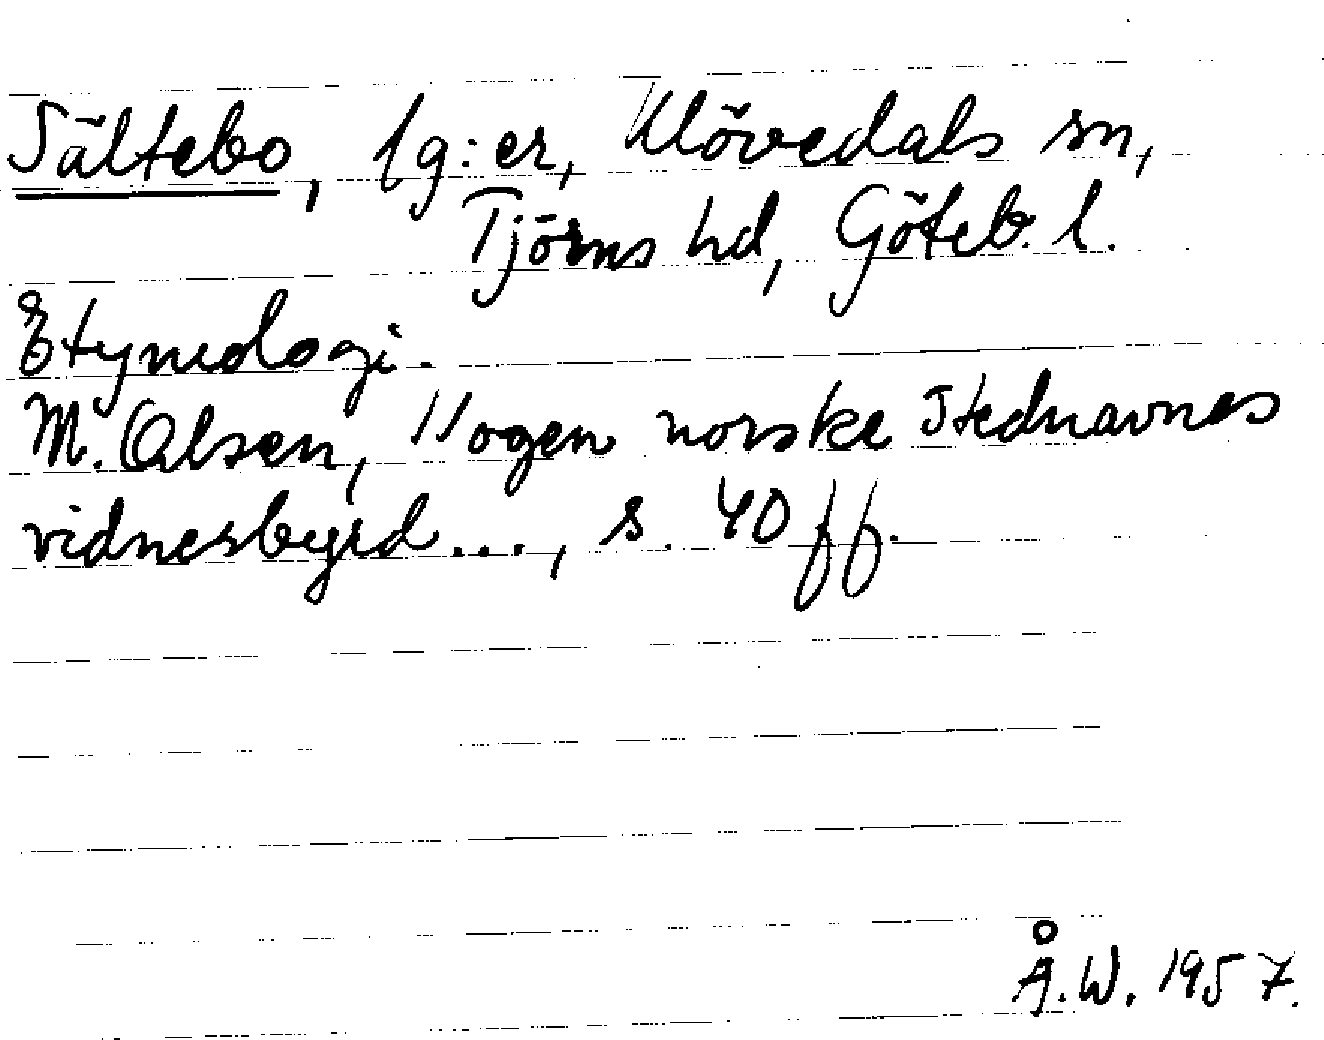 Sältebo, lg:er, Klövedals sn,
Tjörns hd, Göteb. l.
Etymologi.
M. Olsen, Hvogen norske Stednavnes
vidnesbyrd..., s. 40 ff.
Å.W. 1957.